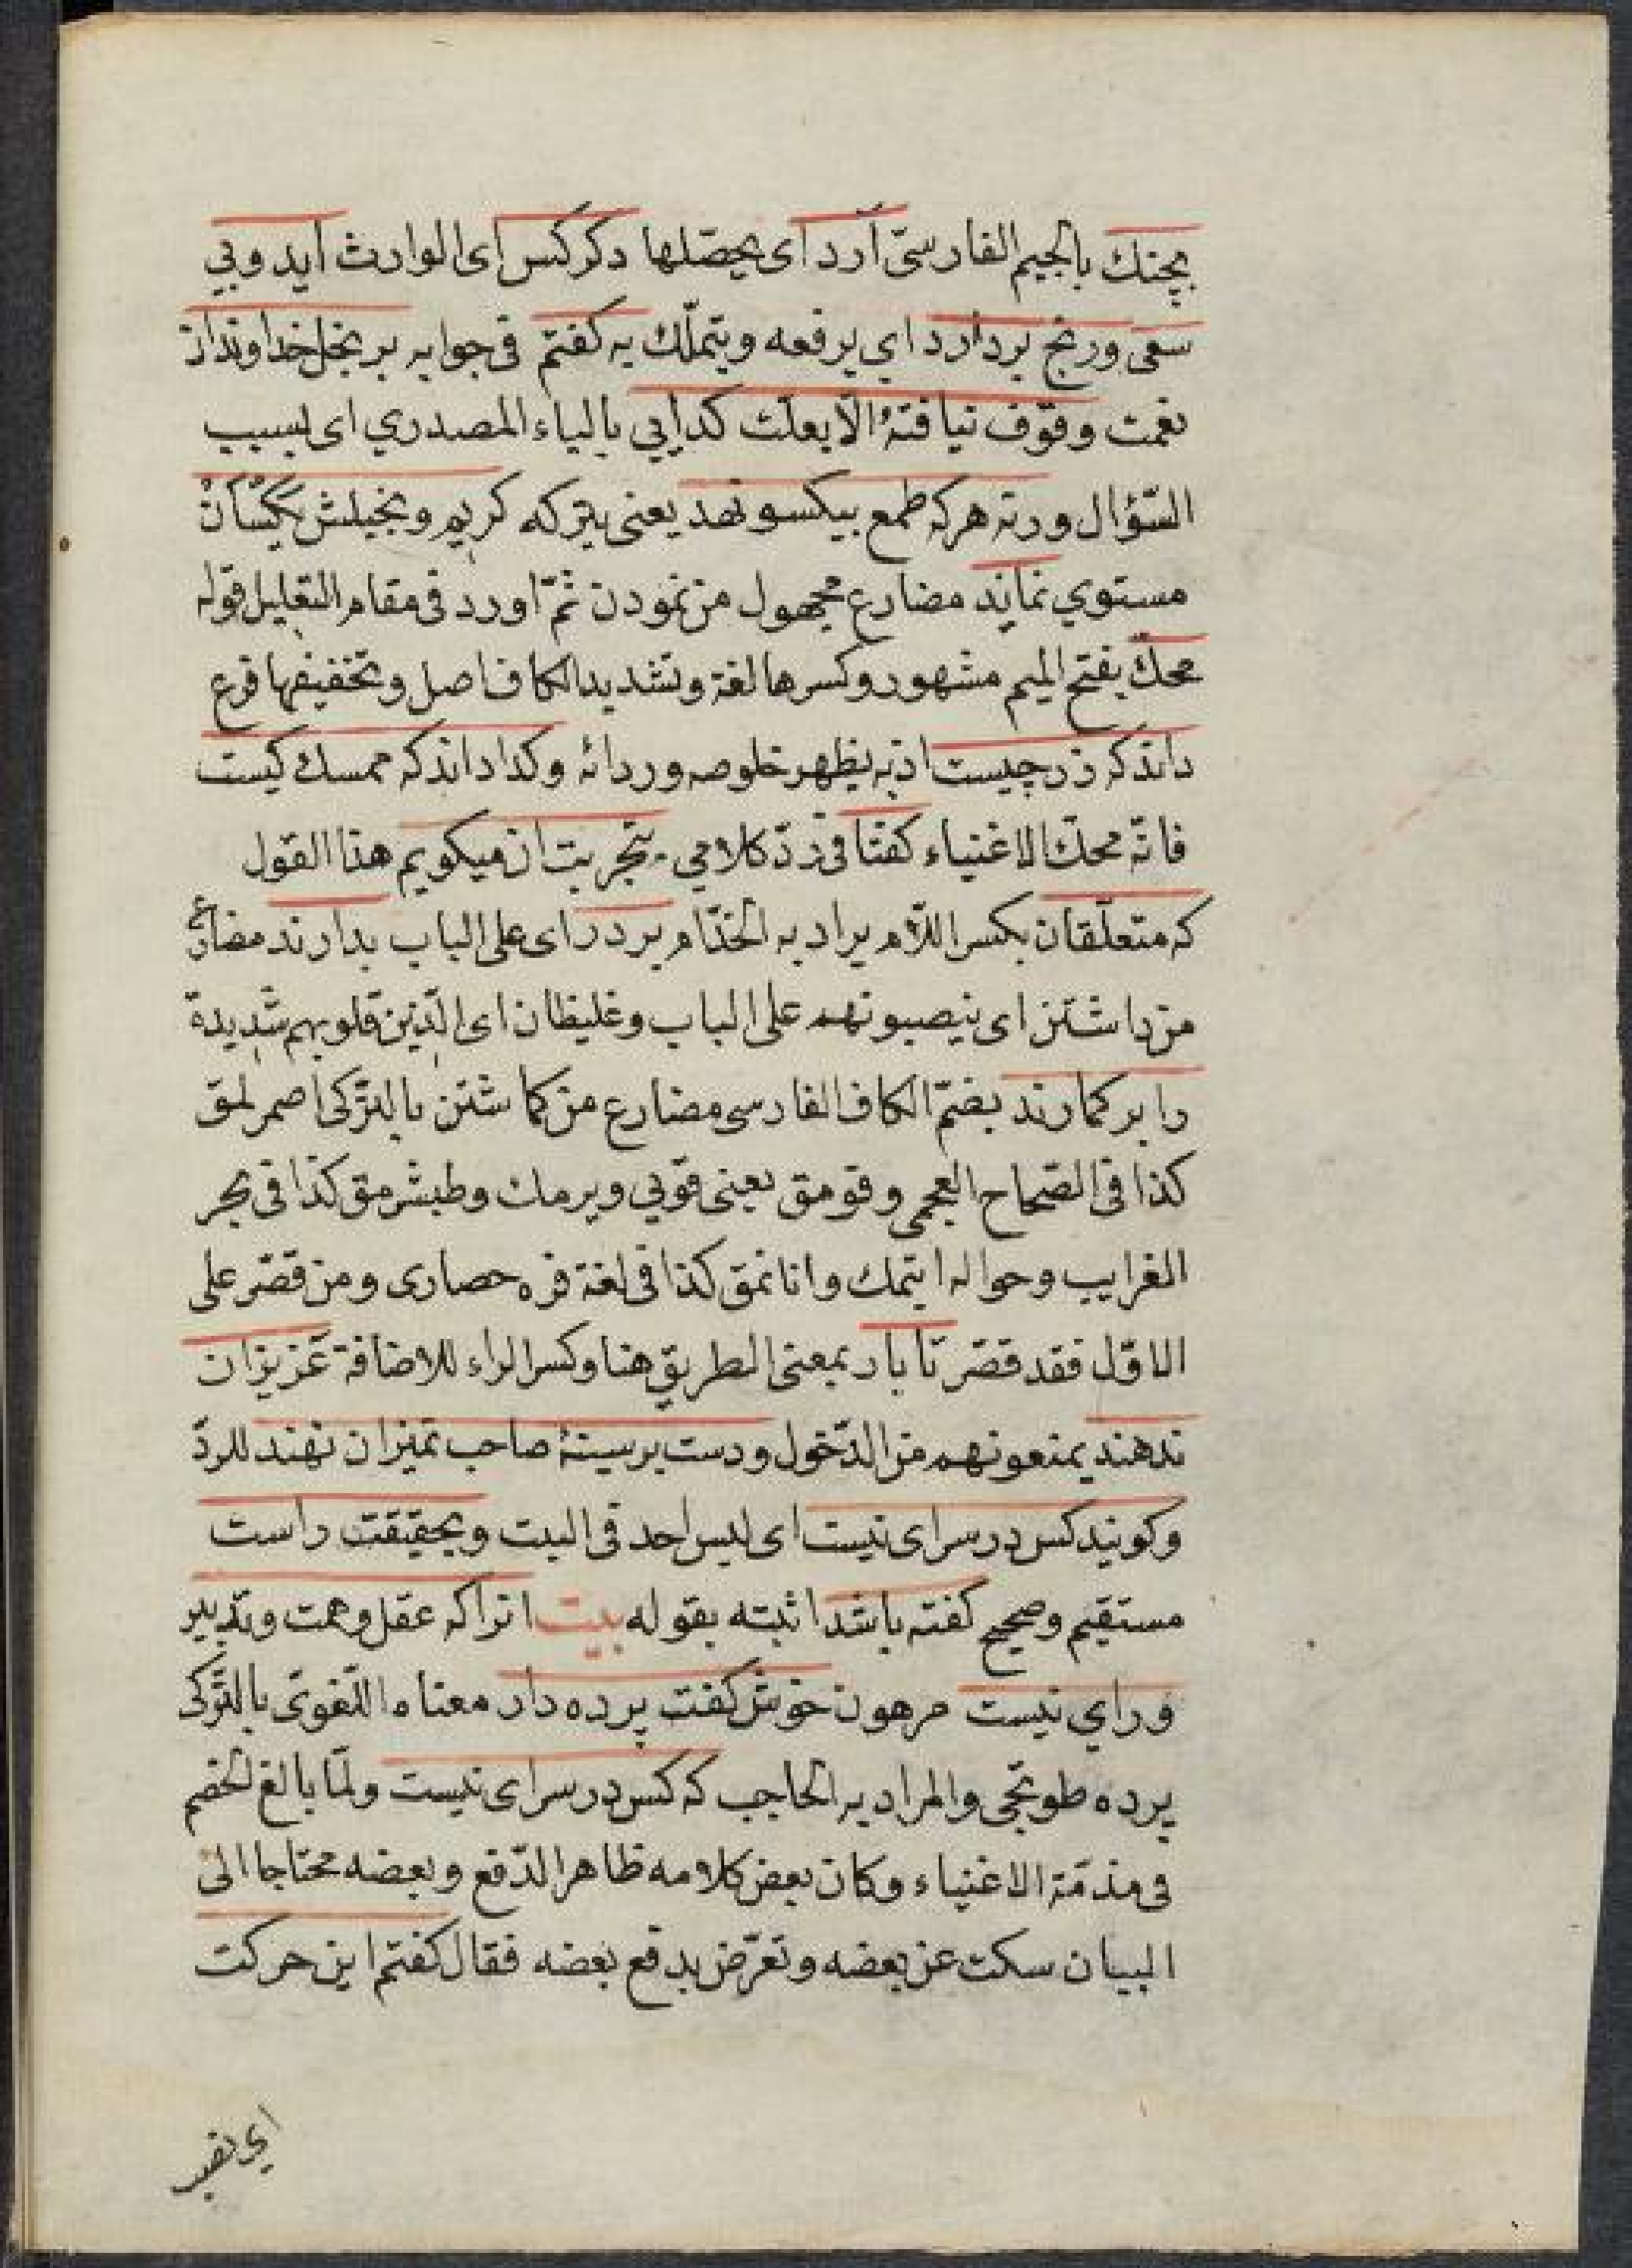 بچنك بالجيم الفارسىّ آرد اى يحصّلها دكر كس اى الوارث آيد وبي
سعى ورنج بردارد اي يرفعه ويتملّك به كفتم فى جوابه بر بخل خداوندان
نعمت وقوف نيافتهٔ الّا بعلّت كدايي بالياء المصدري اى بسبب
السّؤال ورنه هركه طمع بيكسو نهد يعنى يتركه كريم وبخيلش يكسان
مستوي نمايد مضارع مجهول من نمودن ثمّ اورد فى مقام التعليل قوله
محكّ بفتح الميم مشهور وكسرها لغة وتشديد الكاف اصل وتخفيفها فرع
داند كه زر چيست اذ به يظهر خلوصه وردائه وكدا داند كه ممسك كيست
فانّه محكّ الاغنياء كفتا فى ردّ كلامي بتجربت آن ميكويم هذا القول
كه متعلّقان بكسر اللّام يراد به الخدّام بر در اى على الباب بدارند مضارع
من داشتن اى ينصبونهم على الباب وغليظان اى الّذين قلوبهم شديدة
را بر كمارند بضمّ الكاف الفارسى مضارع من كماشتن بالتركى اصمرلمق
كذا فى الصّحاح العجمى وقومق يعنى قويى ويرمك وطبشرمق كذا فى بحر
الغرايب وحواله ايتمك وانانمق كذا فى لغة قره حصارى ومن قصّر على
الاوّل فقد قصّر تا بار بمعنى الطريق هنا وكسر الراء للاضافة عزيزان
ندهند يمنعونهم من الدّخول ودست بر سينهٔ صاحب تميزان نهند للردّ
وكويند كس در سراى نيست اى ليس احد فى البيت وبحقيقت راست
مستقيم وصحيح كفته باشد اثبته بقوله بيت انرا كه عقل وهمت وتدبير
وراي نيست مرهون خوش كفت پرده دار معناه اللّغوىّ بالتّركى
پرده طوتجى والمراد به الحاجب كه كس در سراى نيست ولمّا بالغ الخصم
فى مذمّة الاغنياء وكان بعض كلامه ظاهر الدّفع وبعضه محتاجا الى
البيان سكت عن بعضه وتعرّض بدفع بعضه فقال كفتم اين حركت